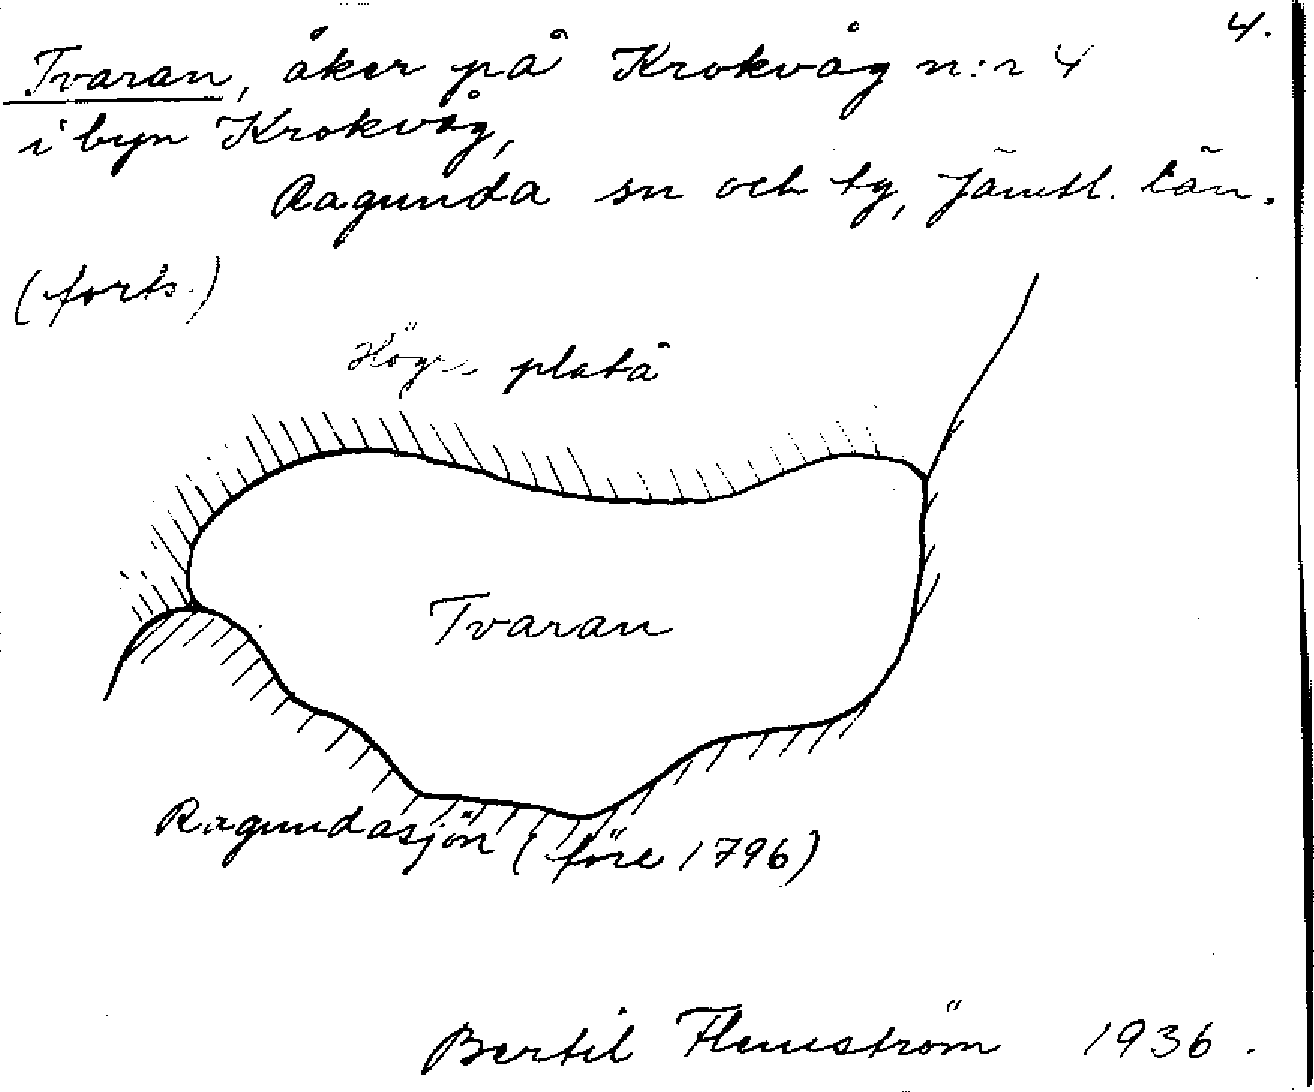 4.
Tvaran, åker på Krokvåg n:r 4
i byn Krokvåg,
Ragunda sn och tg, Jämtl. län.
(forts.)
Högre platå
Tvaran
Ragundasjön (före 1796)
Bertil Flemström 1936.